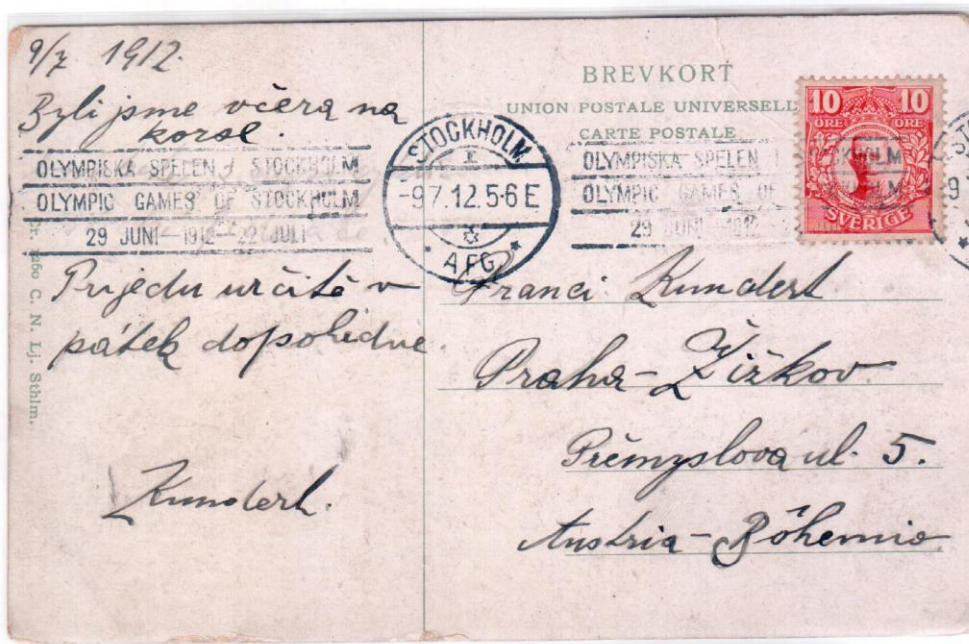 9/7 1912.
Byli jsme včera na
korse.
OLYMPISKA SPELEN I STOCKHOLM
OLYMPIC GAMES OF STOCKHOLM
29 JUNI-1912-22 JULI
Přijedu určitě v
pátek dopoledne.
Kundert.
Nr. 1260 C. N. Lj. Sthlm.
STOCKHOLM
-9.7.12.5-6 E
AFG
BREVKORT
UNION POSTALE UNIVERSELL
CARTE POSTALE
OLYMPISKA SPELEN I
OLYMPIC GAMES OF
29 JUNI-1912-2
10 10
ÖRE ÖRE
CKHOLM
SVERIGE
ST
-9.7
Franci Kundert
Praha-Žižkov.
Přemyslova ul. 5.
Austria-Böhemia